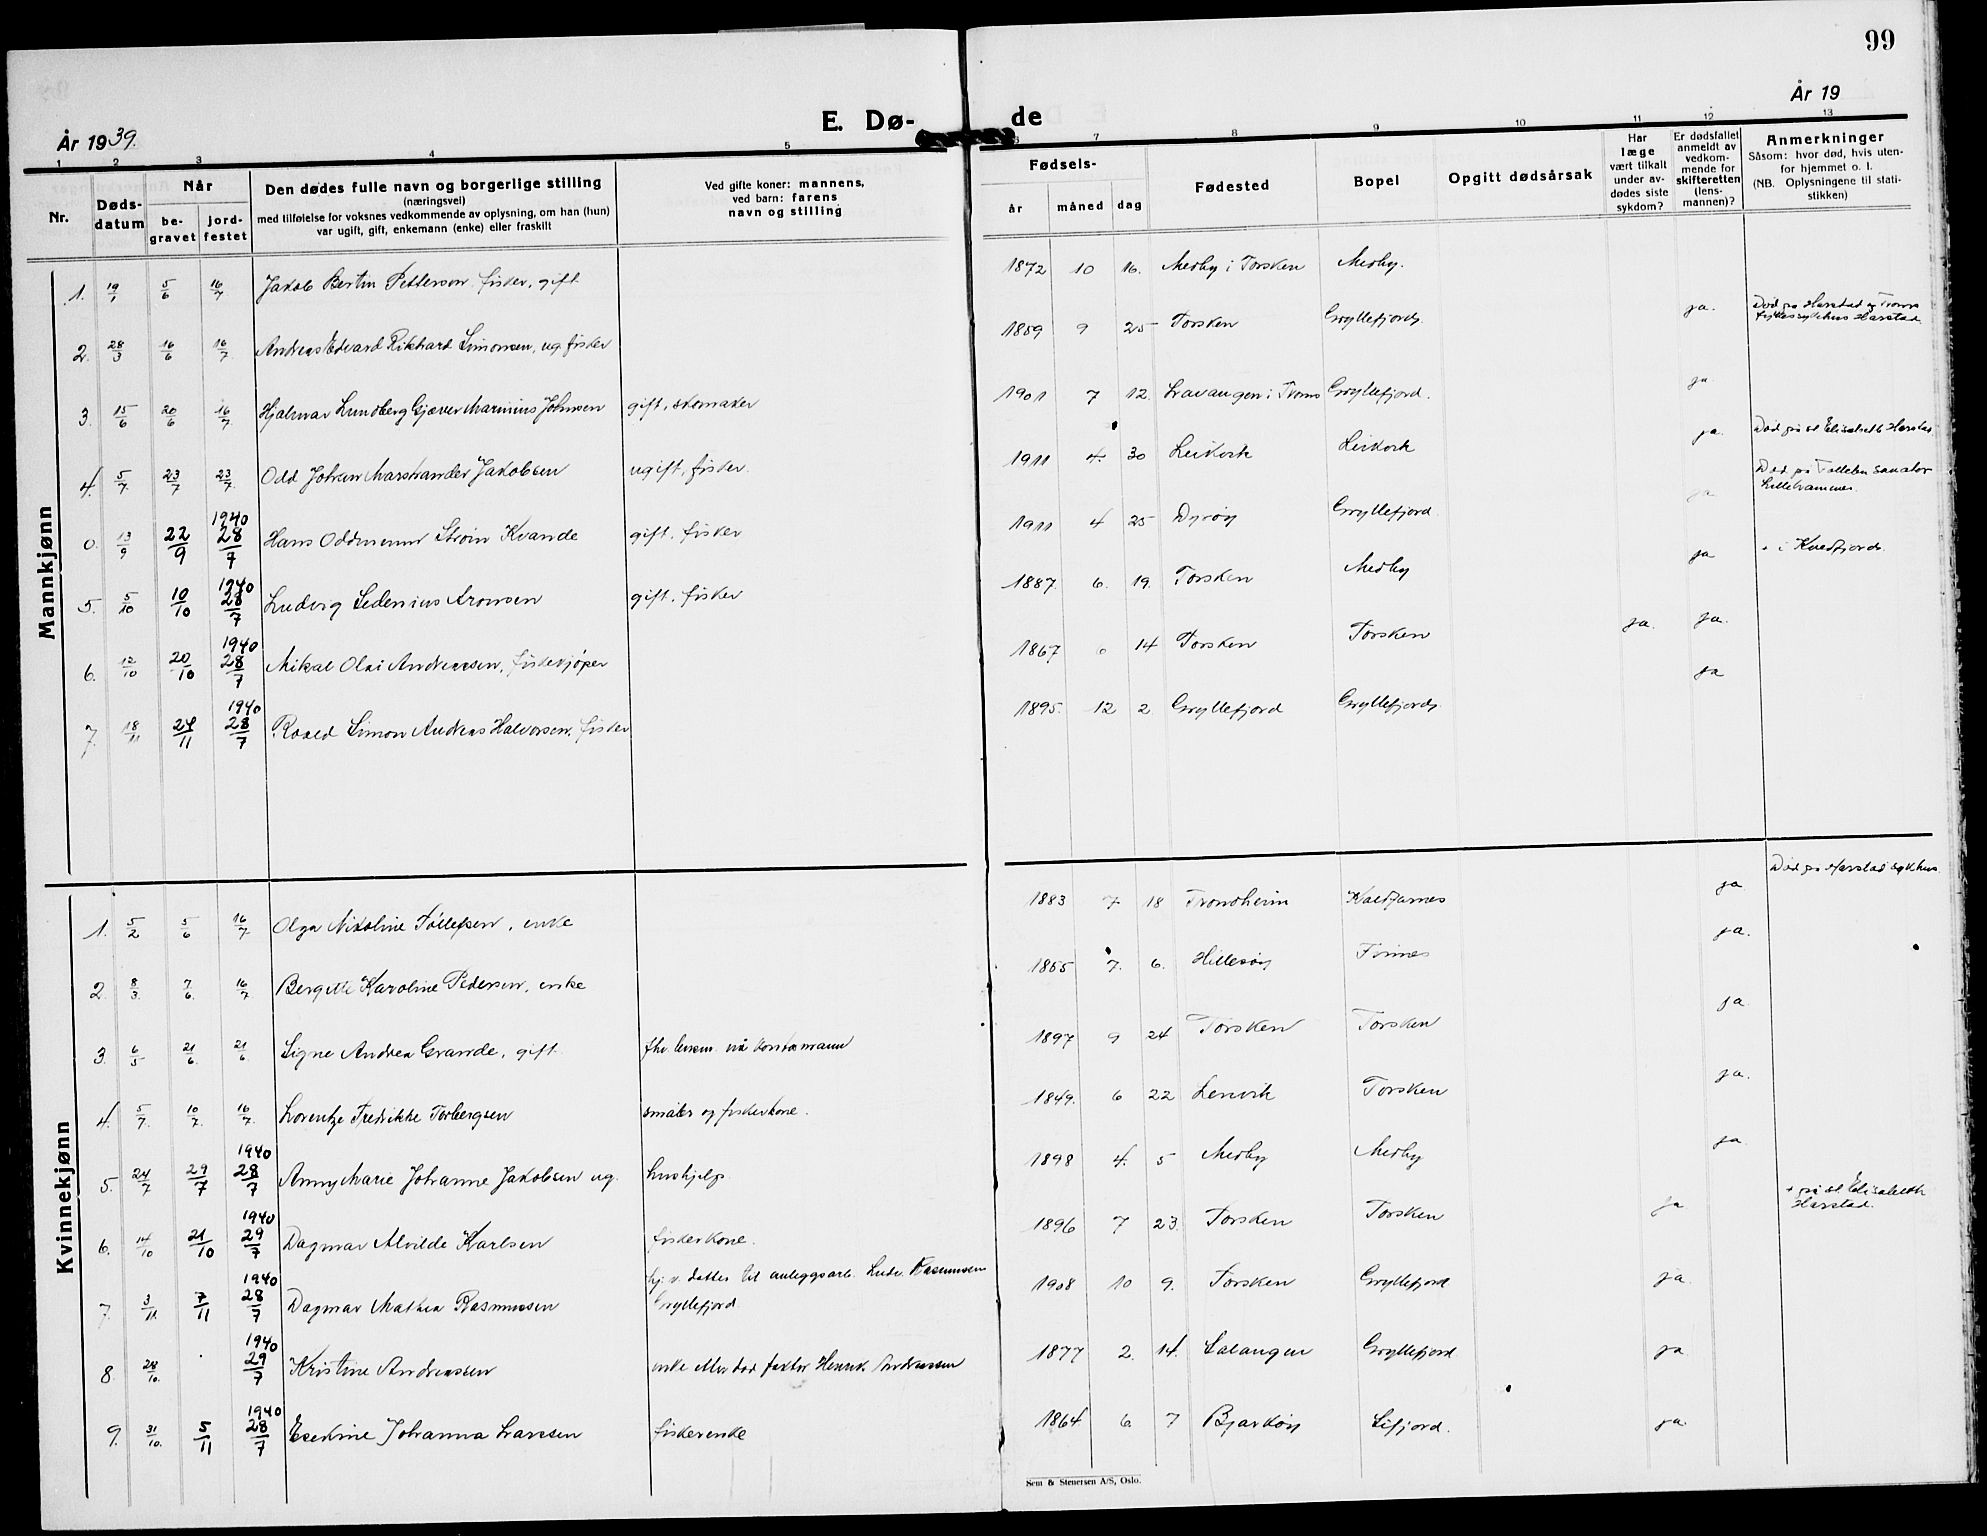 99
År 1939.
E. Dø-
de
År 19
1 2 3 4 5 6 7 8 9 10 11 12 13
Nr.
Døds-
datum
Når
be-
gravet
jord-
festet
Den dødes fulle navn og borgerlige stilling
(næringsvei)
med tilføielse for voksnes vedkommende av oplysning, om han (hun)
var ugift, gift, enkemann (enke) eller fraskilt
Ved gifte koner: mannens,
ved barn: farens
navn og stilling
Fødsels-
år måned dag
Fødested
Bopel
Opgitt dødsårsak
Har
læge
vært tilkalt
under av-
dødes siste
sykdom?
Er dødsfallet
anmeldt av
vedkom-
mende for
skifteretten
(lens-
mannen)?
Anmerkninger
Såsom: hvor død, hvis uten-
for hjemmet o. l.
(NB. Oplysningene til stati-
stikken)
Mannkjønn
1. 19/1 5/6 16/7 Jakob Bertin Pettersen fisker, gift 1872 10 16. Medby i Torsken Medby.
2. 28/3 16/6 16/7 Andreas Edvard Rikhard Simonsen, ug. fisker 1859 9 25 Torsken Gryllefjord. ja. Død på Harstad
sykehus Harstad.
3. 15/6 20/6 16/7 Hjalmar Lundberg Gjæver Marinius Johnsen gift, skomaker 1901 7 12. Lavangen i Troms Gryllefjord. ja
4. 5/7 23/7 23/7 Odd Johan Marstrander Jakobsen ugift, fisker. 1911 4. 30 Leikvik Leikvik ja. Død på st Elisabeth Harstad.
0. 13/9 22/9 1940 28/7 Hans Oddmunn Strøm Kvande gift, fisker 1911 4 25 Dyrøy Gryllefjord. ja Død på
Lillehammer.
5. 5/10 10/10 1940 28/7 Ludvig Sedenius Aronsen gift, fisker 1887. 6. 19. Torsken Medby ja i Kvedfjord.
6. 12/10 20/10 1940 28/7 Mikal Olai Andreassen, fiskekjøper 1867 14 Torsken Torsken ja. ja.
7. 18/11 24/11 1940 28/7 Roald Simon Andreas Halvorsen, fisker 1895. 12 2 Gryllefjord Gryllefjord. ja
Kvinnekjønn
1. 5/2 5/6 16/7 Olga Nikoline Tollefsen, enke 1883 7 18 Trondheim Kaldfarnes ja Død på Harstad sykhus.
2. 8/3. 7/6. 16/7. Bergitte Karoline Pedersen, enke 1855 7. 6. Hillesøy Finnes ja.
3. 6/5 21/6. 21/6 Signe Andrea Grande, gift. 1897 9 24 Torsken Torsken ja
4. 5/7. 10/7. 16/7. Lorentze Fredrikke Torbergsen småbr og fiskerkone. 1849. 6 22 Lenvik Torsken ja.
5. 24/7 29/7 1940 28/7 Anny Marie Johanne Jakobsen ug. hushjelp. 1898 4. 5 Medby Medby ja.
6. 14/10 21/10 1940 29/7 Dagmar Alvilde Karlsen fiskerkone. 1896 7 23 Torsken Torsken ja + på st. Elisabeth
Harstad.
7. 3/11. 7/11 1940 28/7 Dagmar Mathea Rasmussen hj.v. datter til anleggsarb. Ludv. Rasmussen
Gryllefjord 1908 10 9. Torsken Gryllefjord ja.
8. 28/10. 1940 29/7 Kristine Andreassen enke etter død faktor Henrik Andreassen 1877 2. 14. Salangen Gryllefjord. ja
9. 31/10. 5/11 1940 28/7 Esekine Johanna Larssen fiskerenke 1864. 6 7 Bjarkøy Sifjord. ja
Sem & Stenersen A/S, Oslo.